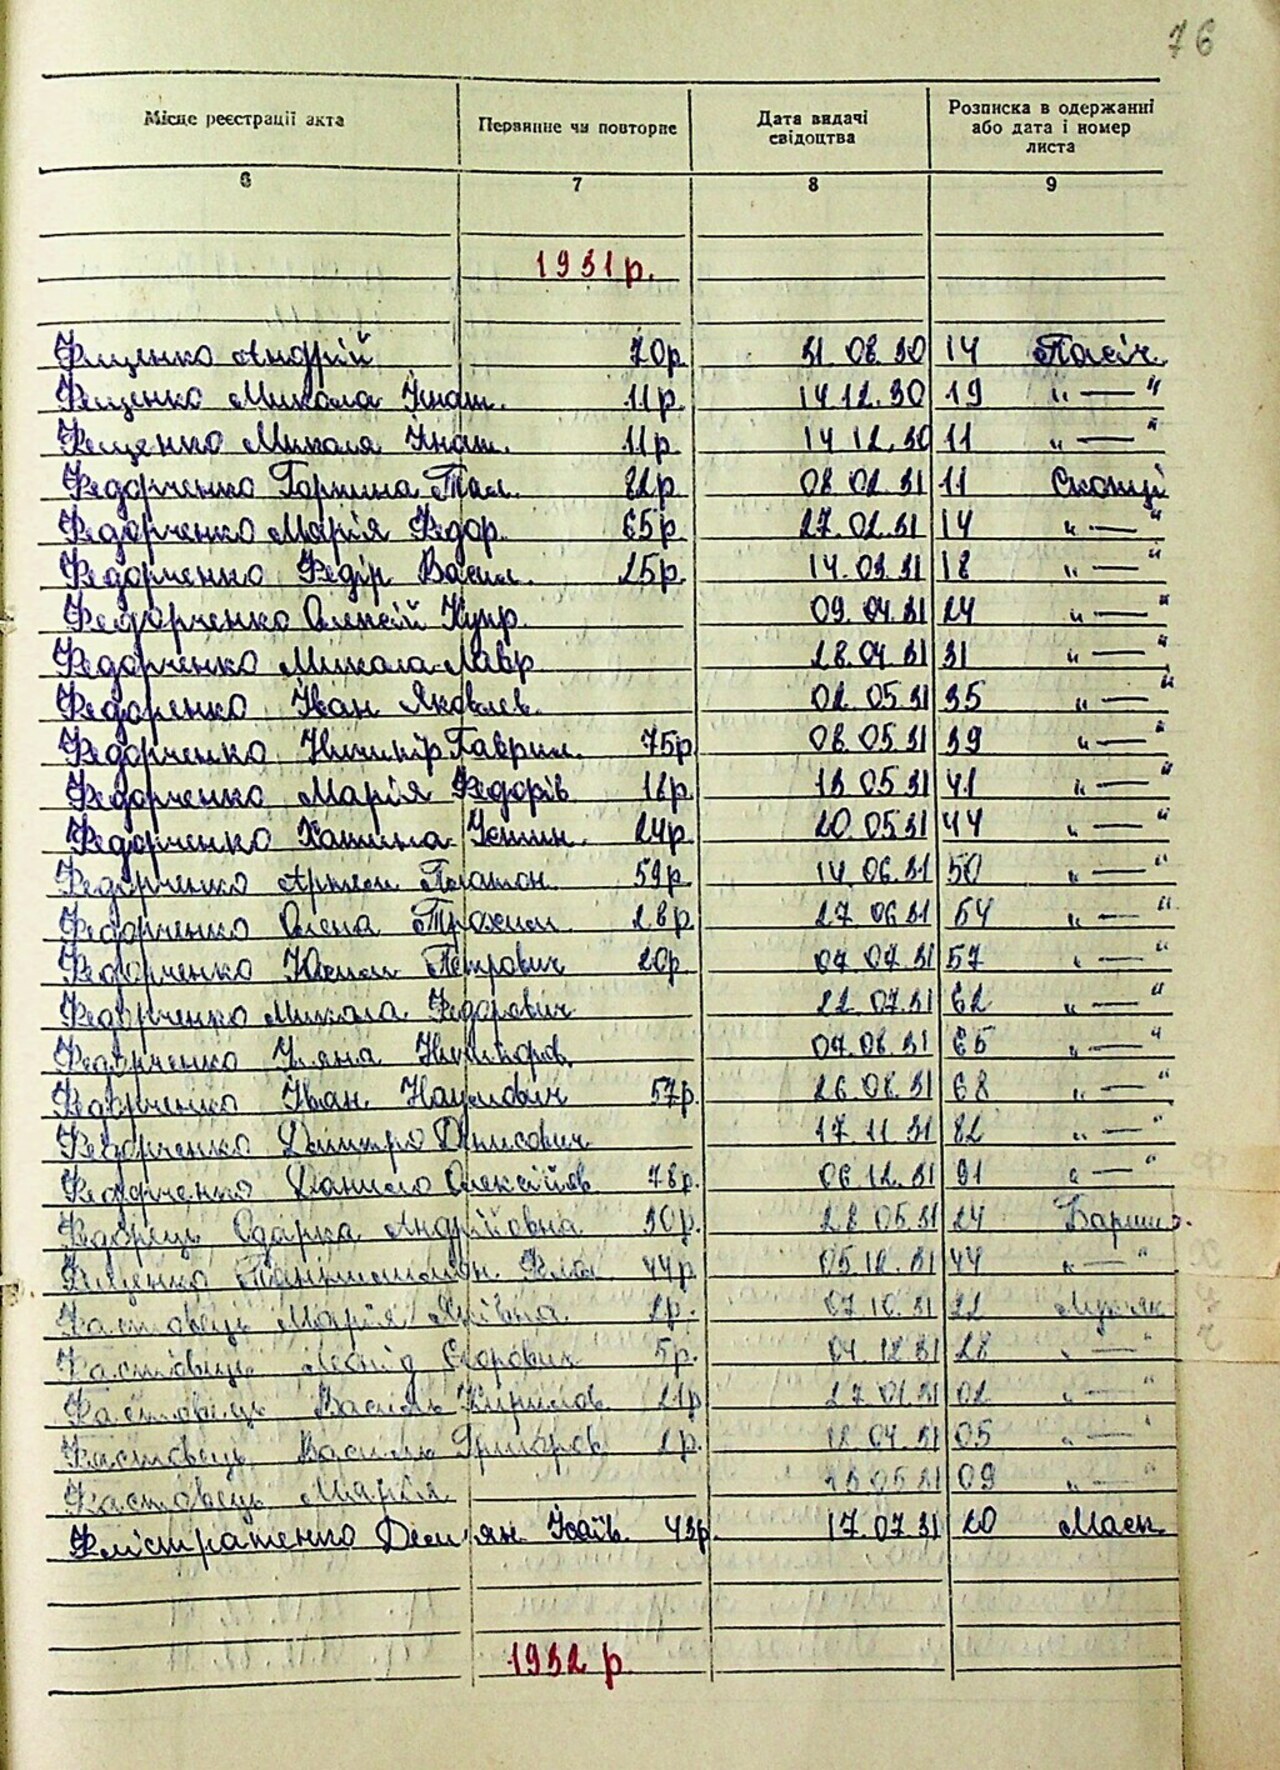 76
Місце реєстрації акта Первинне чи повторне Дата видачі свідоцтва Розписка в одержанні або дата і номер листа
6 7 8 9
1931 р.
Фищенко Андрій 70р 31. 08. 30 14 Пасіч.
Фещенко Микола Ігнат. 11р. 14.12.30 19 „ — "
Фещенко Микола Ігнат. 11р. 14 12.30 11 „ — "
Федорченко Горпина 82р. 08 02. 31 11 Скопці
Федорченко Марія Федор. 65р. 27. 02. 31 14 „ — "
Федорченко Федір Васил. 25р. 14. 03. 31 18 „ — "
Федорченко Олексій Купр. 09. 04. 31 24 „ — "
Федорченко Микола Лавр 28. 04. 31 31 „ — "
Федоренко Іван Яковлев. 02. 05 31 35 „ — "
Федорченко Ничипір Гаврил. 75р 08. 05. 31 39 „ — "
Федорченко Марія Федорів 16р. 13 05 31 41 „ — "
Федорченко Устин. 24р. 20. 05.31 44 „ — "
Федорченко Артем Платон. 59р. 14. 06. 31 50 „ — "
Федорченко Олена Трохим 28р. 27. 06 31 54 „ — "
Федорченко Юхим Петрович 20р. 07. 07. 31 57 „ — "
Федорченко Микола Федорович 22. 07. 31 62 „ — "
Федорченко Уляна Ничипоров. 07. 08. 31 65 „ — "
Федорченко Іван Наумович 57р. 26. 08. 31 68 „ — "
Федорченко Дмитро Денисович 17. 11. 31 82 „ — "
Федорченко Данило Олексійов. 78р. 06. 12. 31 91 „ — "
Федорець Одарка Андріївна 30р. 28 05. 31 24 Бориш.
Фещенко 44р. 05. 12. 31 44 „ — "
Хастовець Марія 2р. 07. 10. 31 22
Хастовець Леонід Єгорович 5р. 04. 12 31 28 „ — "
Хастовець Василь Кирилов. 21р 27. 01. 31 02 „ — "
Хастовець Василь Григоров. 2р. 12. 04. 31 05 „ — "
Хастовець Марія 13 05 31 09 „ — "
Філістратенко Дем'ян Ісаїв. 43р. 17. 07 31 20 Масн.
1932 р.